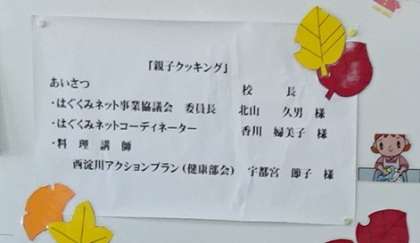 「親子クッキング」
あいさつ 校 長
・はぐくみネット事業協議会 委員長 北山 久男 様
・はぐくみネットコーディネーター 香川 婦美子 様
・料 理 講 師
西淀川アクションプラン(健康部会) 宇都宮 節子 様